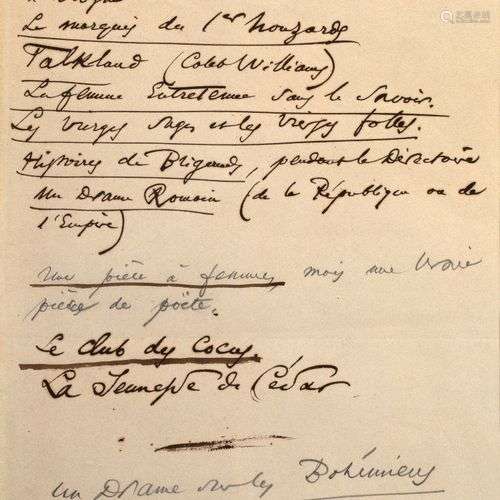 Le marquis du 1er houzards
Falkland (Caleb Williams)
La femme Entretenue sans le savoir.
Les vierges sages et les vierges folles.
Histoires de Brigands, pendant le Directoire
Un Drame Romain (de la République ou de
l'Empire)
Une pièce à femmes, mais une vraie
pièce de poëte.
Le club des Cocus.
La Jeunesse de César
Un Drame sur les Bohémiens